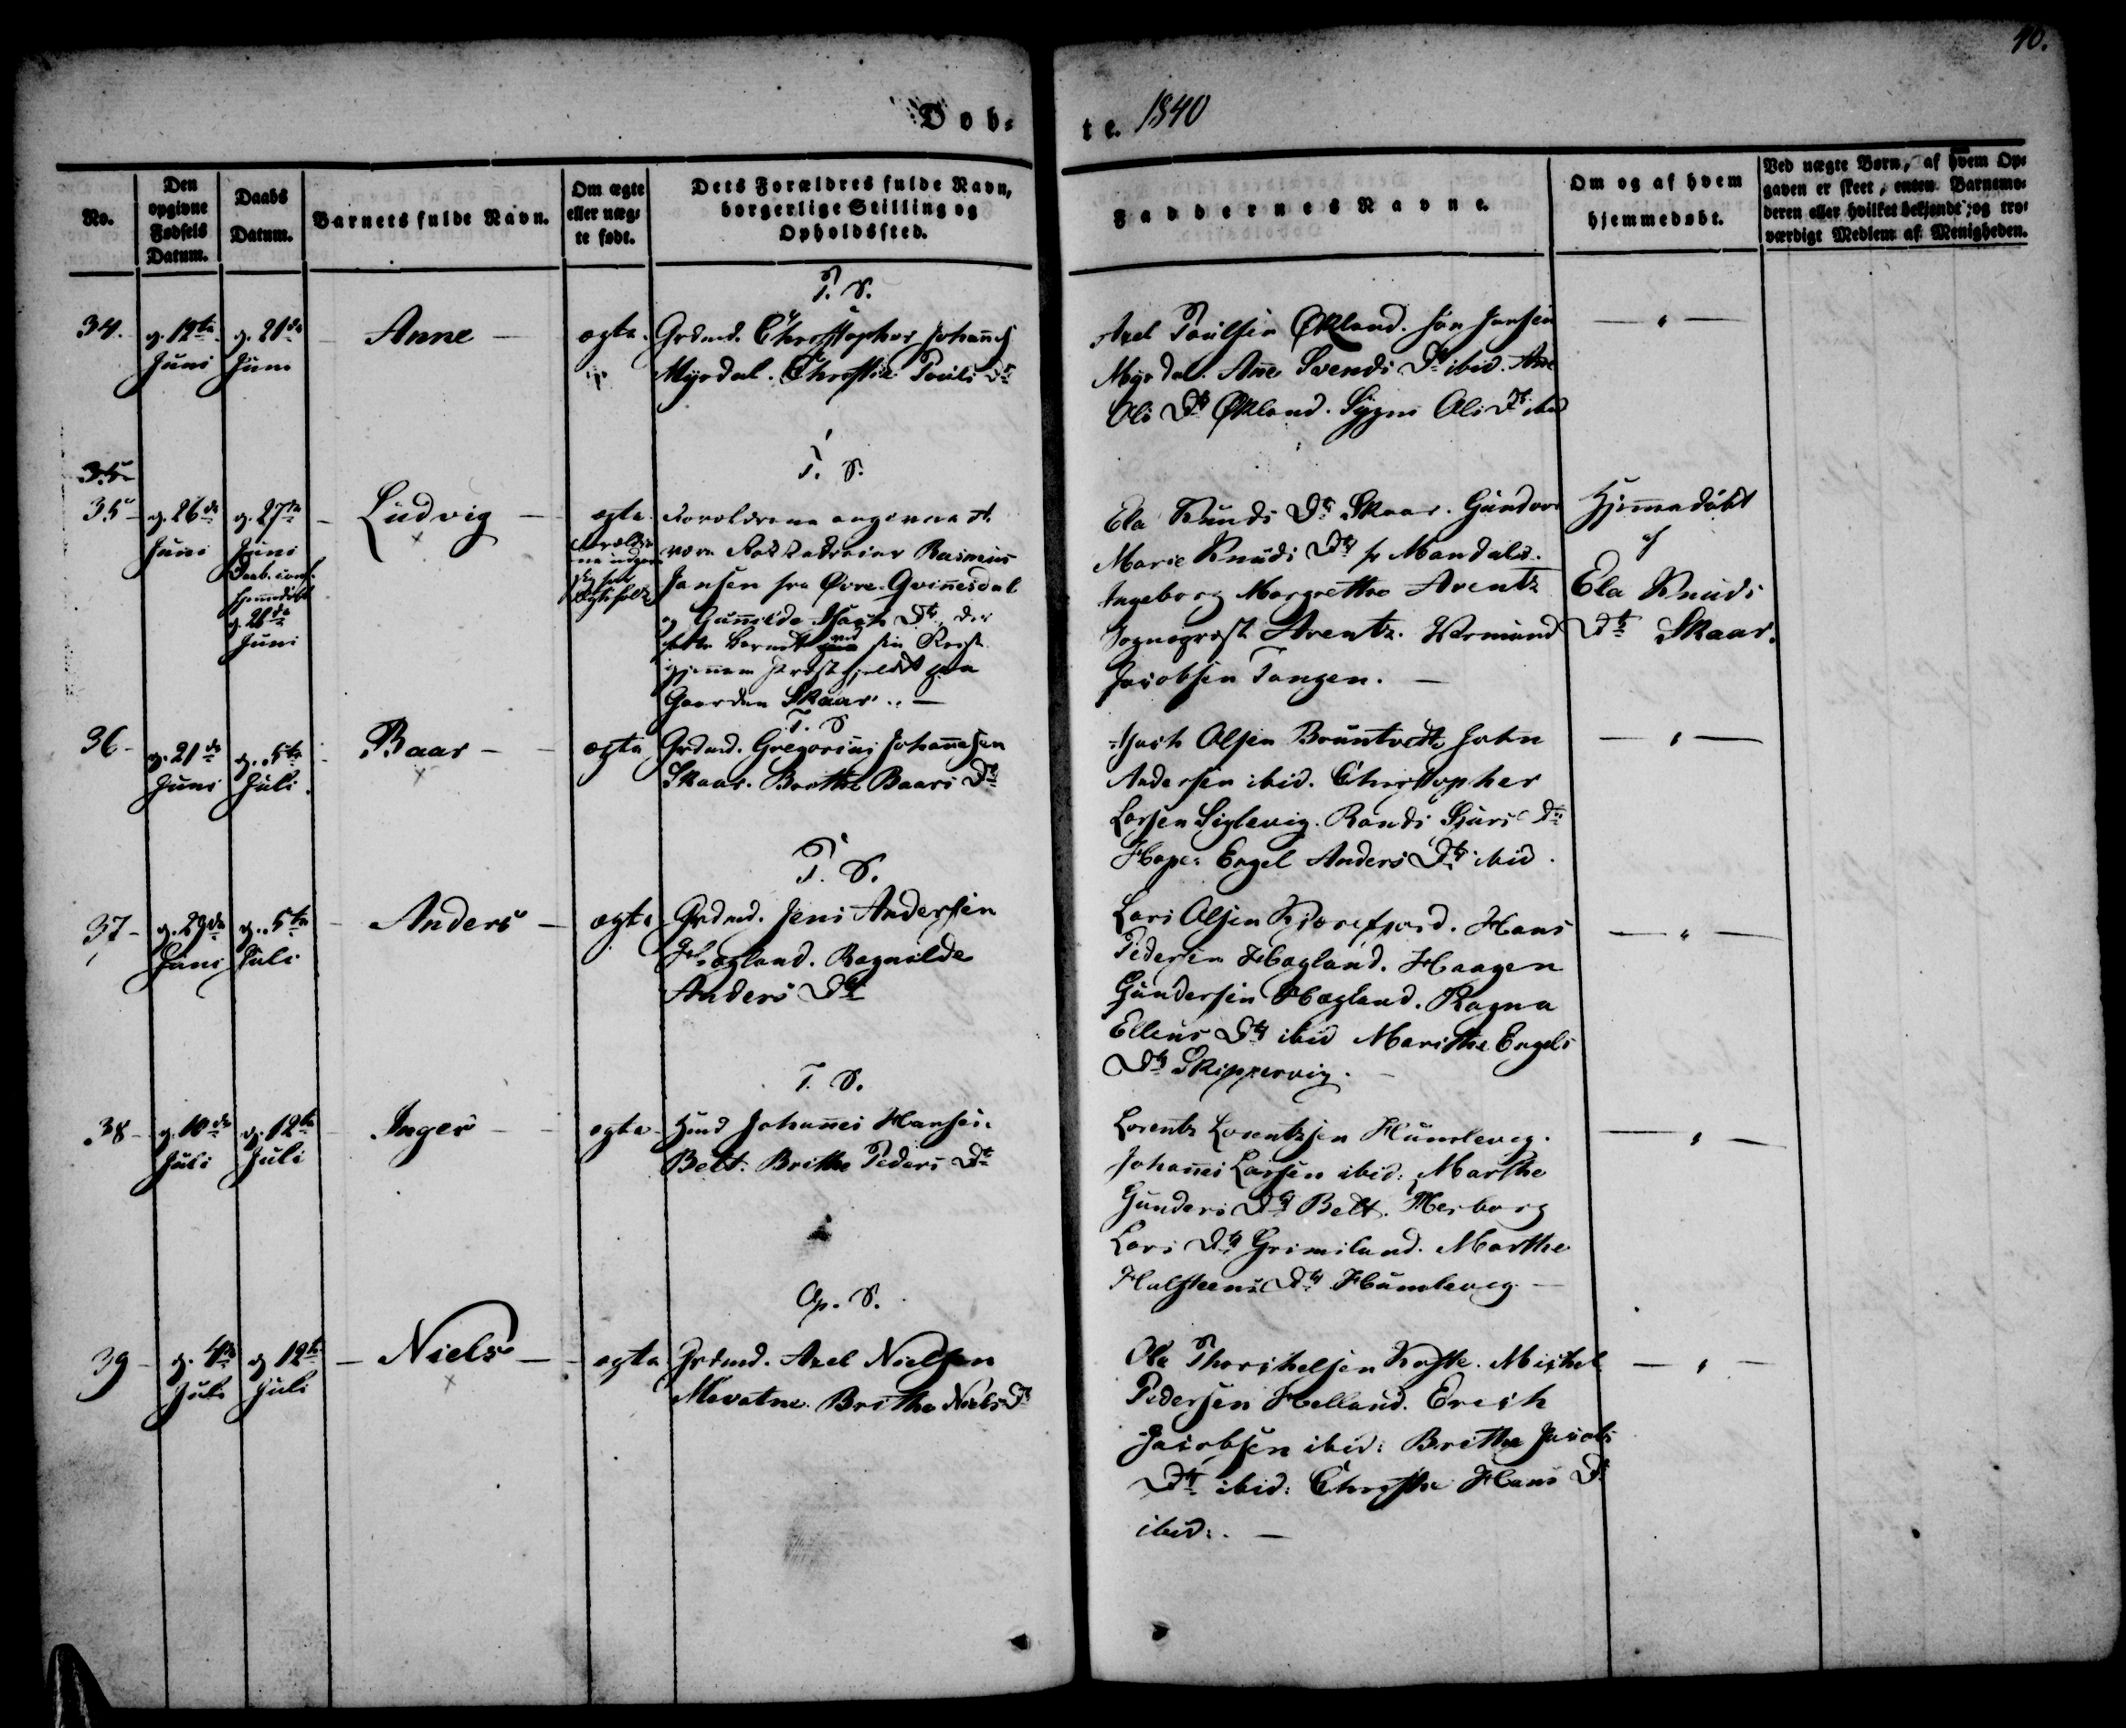 40.
Døb-
te. 1840
No.
Den
opgivne
Fødsels
Datum.
Daabs
Datum.
Barnets fulde Navn.
Om ægte
eller uæg-
te født.
Dets Forældres fulde Navn,
borgerlige Stilling og
Opholdssted.
Faddernes Navne.
Om og af hvem
hjemmedøbt.
Ved uægte Børn, af hvem Op-
gaven er skeet, enten Barnemo-
deren eller hvilket bekjendt, og tro-
værdigt Medlem af Menigheden.
T. S.
34.
d. 12te
Juni
d. 21de
Juni
Anne
ægte.
Grdmd. Christopher Johannes
Myrdal. Christie Pouls Dtr
Axel Poulsen Økland.
Myrdal. Ane Svends Dtr ibid. Ane
Ols Dtr Økland. Sygni Ols Dtr ibid
T. S.
35
35
d. 26de
Juni
d. 27de
Juni
Daab. conf.
hjemmedøbt
d. 28de
Juni
Ludvig
ægte
Forældre-
ne udgav
sig for
Ægtefolk
Forældrene angivne at
være Rasmus
Jansen fra Øvre Qvinesdal
og Gunnilde Dtr, der
fødte Barnet ved sin Reise
gjennem Præstegjeldet paa
Gaarden Skaar.
Ela Knuds Dtr Skaar. Gundvor
Marie Knuds Dtr fr Mandahl.
Ingeborg Margrethe Arentz
Sognepræst Arentz. Vermund
Jacobsen Tangen.
Hjemmedøbt
af
Ela Knuds
Dtr Skaar.
T. S
36
d. 21de
Juni
d. 5te
Juli
Baar
ægte
Grdmd. Gregorius Johannesen
Skaar. Brithe Baars Dtr
Isach Olsen Bruntvedt John
Andersen ibid. Christopher
Larsen Siglevig. Randi Sjurs Dtr
Hope. Engel Anders Dtr ibid.
T. S.
37
d. 29de
Juni
d. 5te
Juli
Anders
ægte
Grdmd. Jens Andersen
Hægland. Ragnilde
Anders Dtr
Lars Olsen Hans
Pedersen Hægland. Haagen
Gundersen Hægland. Ragna
Ellens Dtr ibid Marithe Engels
Dtr Skippervig.
T. S.
38
d. 10de
Juli
d. 12te
Juli
Inger
ægte
Hmd Johannes Hansen
Belt. Brithe Peders Dtr
Lorentz Lorentzsen Humlevig.
Johannes Larsen ibid. Marthe
Gunders Dtr Belt. Herborg
Lars Dtr Grimsland. Marthe
Halsteens Dtr Humlevig
Op. S.
39
d. 4de
Juli
d 12te
Juli
Niels
ægte
Grdmd. Axel Nielsen
Mevatne. Brithe Niels Dtr
Ole Thorchelsen Koste. Michel
Pedersen Helland. Erich
Jacobsen ibid. Brithe Jacobs
Dtr ibid: Christi Hans Dtr
ibid:.